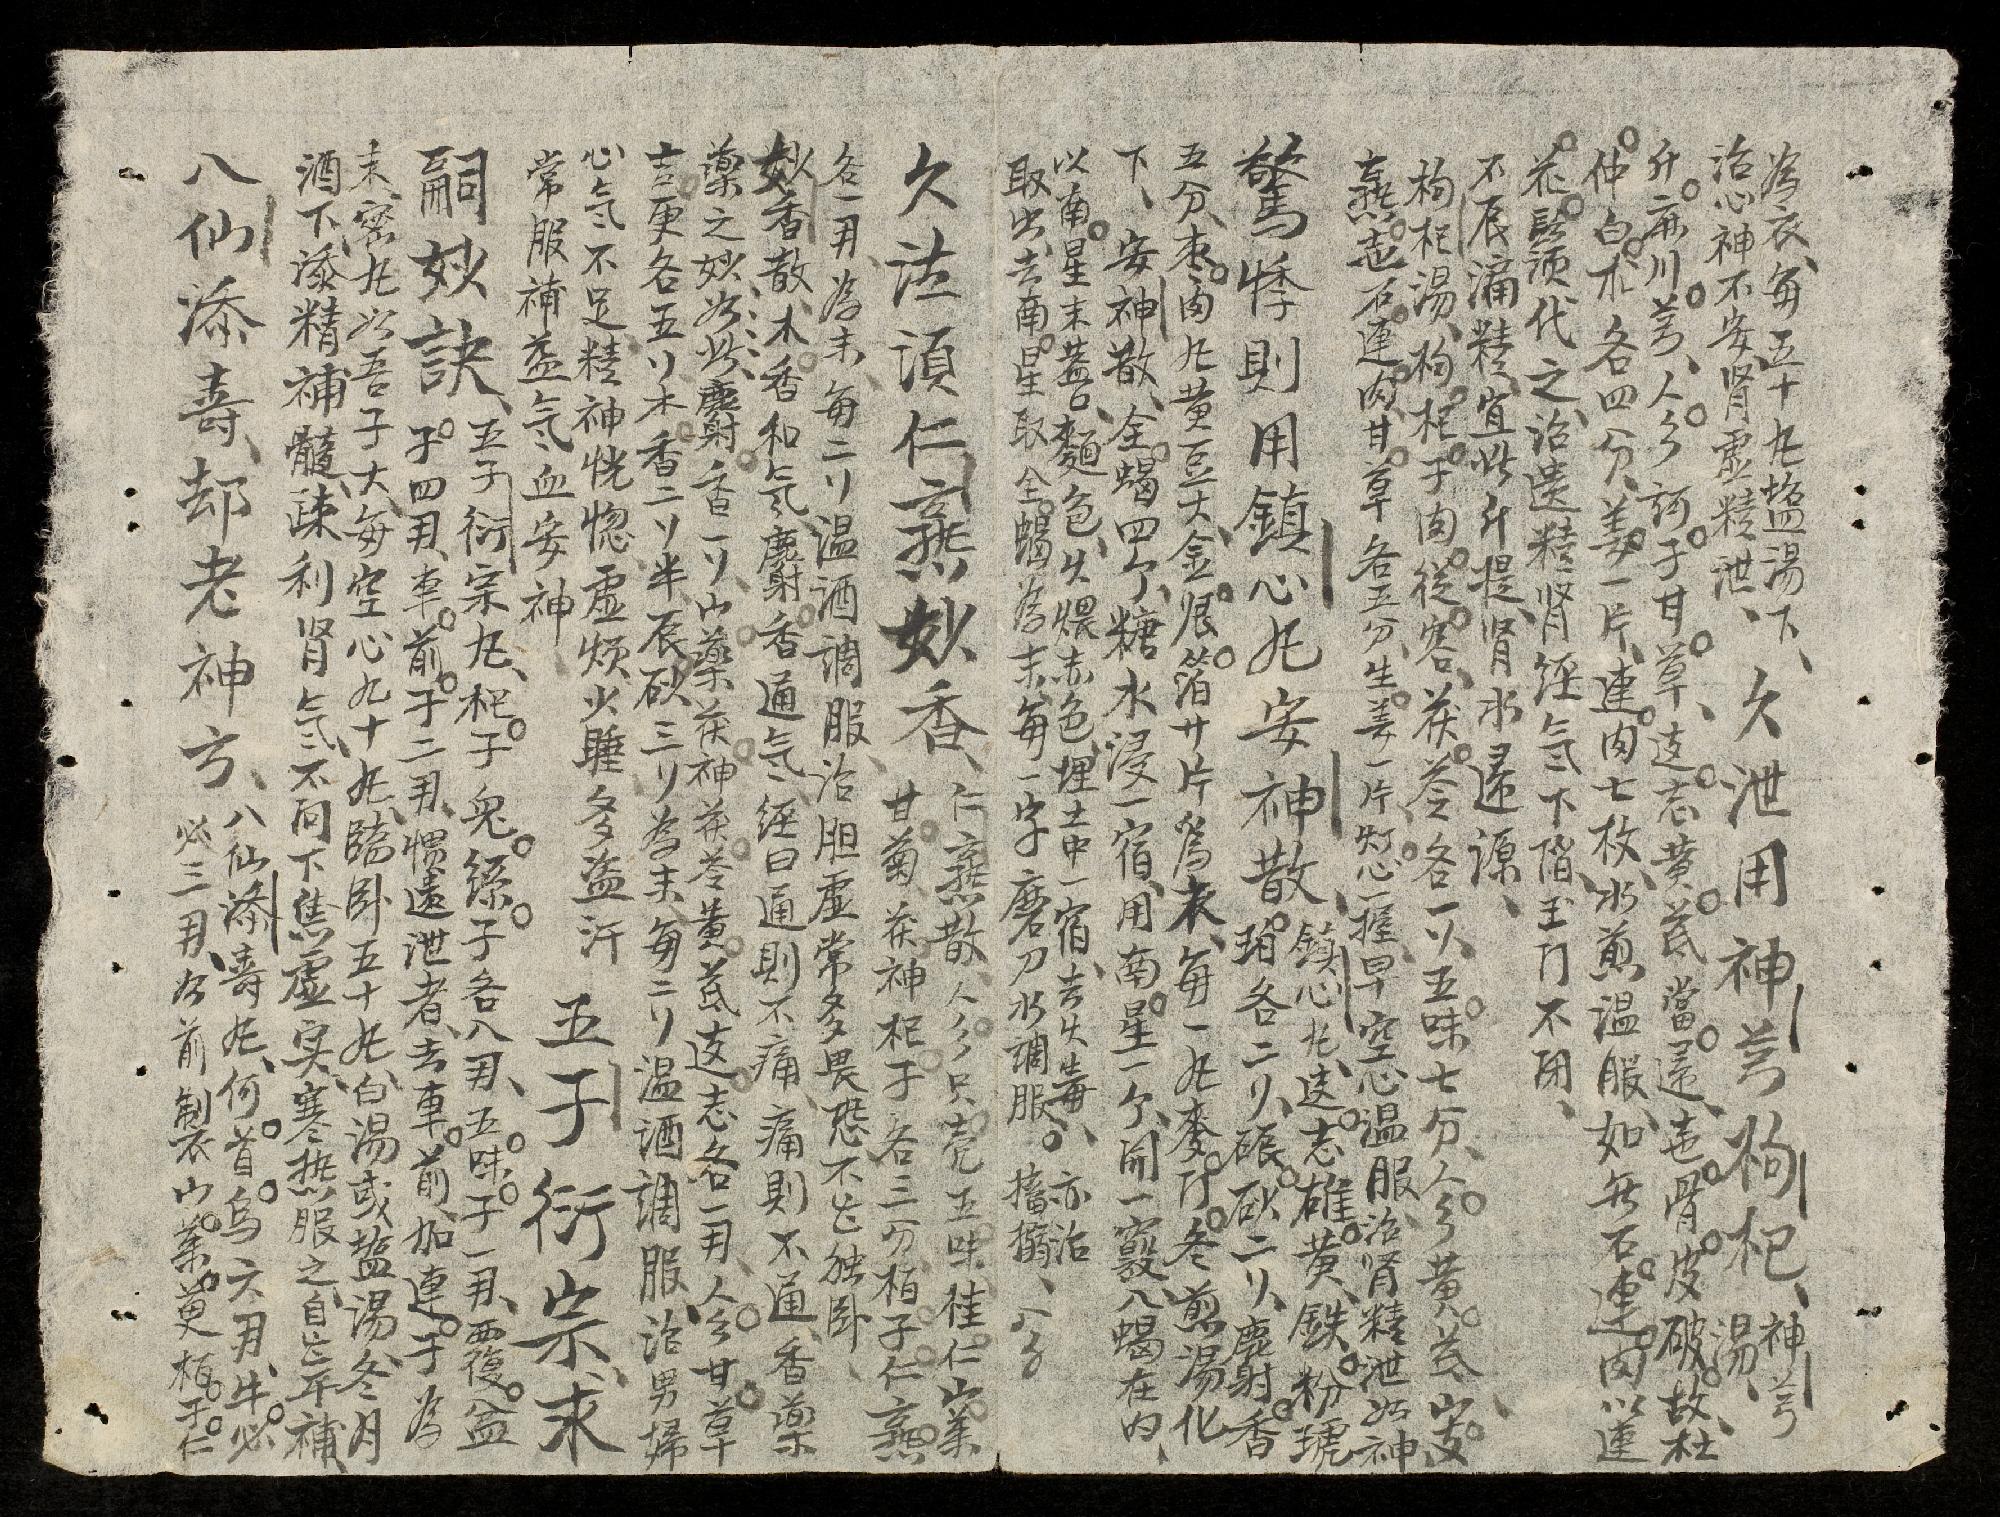 為衣、每五十丸塩湯下、久泄用神芎枸杞、神芎湯、
治心神不安、肾虚精泄、
升麻川芎、人參訶子甘草、远志黄茋當归、地骨皮破故杜
仲白朮各四分、姜一片、連肉七枚、水煎温服、如無石連肉以連
花鬚須代之、治遗精肾經气下陷玉门不闭、
不辰漏精、宜此升提、肾水還源、
枸杞湯、枸杞子肉從容、茯苓各一刂、五味七分、人參黄茋、山茰
熟芐石連肉、甘草各五分、生姜一片、灯心一握、早空心温服、治肾精泄、此神
驚悸則用鎮心丸安神散、鎮心丸、远志雄黄、鉄粉琥
珀各二刂、辰砂二刂、麝香
五分、枣肉丸黄豆大、金泊廿片為衣、每一丸麥门冬煎湯化
下、安神散、全蝎四个、糖水浸一宿、用南星一个、開一竅、入蝎在内、
以南星末葢、麵包、火煨赤色、埋土中一宿、去火毒、亦治
取出、去南星、取全蝎為末、每一字磨刀水調服。搐搦、
久法須仁熟妙香、仁熟散、人參只壳五味、桂仁山茱
甘菊、茯神杞子各三分、柏子仁熟
各一用、為末、每二刂温酒調服、治胆虚常多畏恐不㠯独卧、
妙香散、木香和气、麝香通气、經曰通則不痛、痛則不通、香藥
藥之妙、为此、麝香一刂、山藥茯神茯苓黄茋远志各一用、人參甘草
吉更各五刂、木香二刂半、辰砂三刂、為末、每二刂温酒調服、治男婦
心气不足、精神恍惚、虚烦火睡多盗汗
常服補益气血安神、五子衍宗、求
嗣妙訣、五子衍宗丸、杞子兔絲子各八用、五味子一用、覆盆
子四用、車前子二用、惯遗泄者、去車前加連子、為
末、蜜丸如吾子大、每空心九十丸、臨卧五十丸、白湯或塩湯、冬月
酒下、添精補髓、疎利肾气、不问下焦虚实寒热、服之自㠯平補
八仙添壽却老神方、八仙添壽丸、何首烏六用、牛必
必三用、如前製衣、山茱萸柏子仁